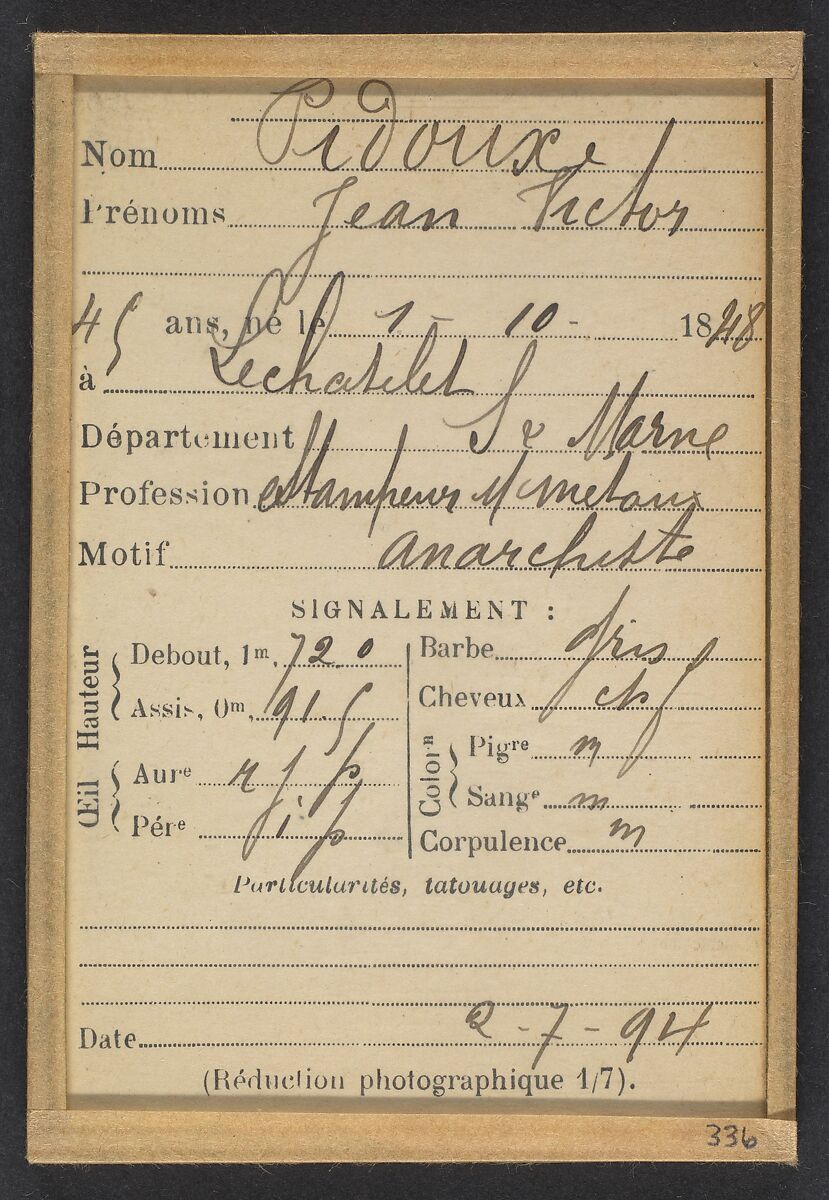 Nom Pidouxe
Prénoms Jean Victor
45 ans, né le 1 - 10 - 1848
à Lechatelet
Département Se Marne
Profession estampeur s/ métaux
Motif anarchiste
SIGNALEMENT :
Hauteur
Debout, 1m, 72.0
Assis, 0m, 91.5
Œil
Aure r j p
Père j i p
Barbe gris
Cheveux ch f
Colorn
Pigre m
Sange m
Corpulence m
Particularités, tatouages, etc.
Date 2 - 7 - 94
(Réduction photographique 1/7).
336